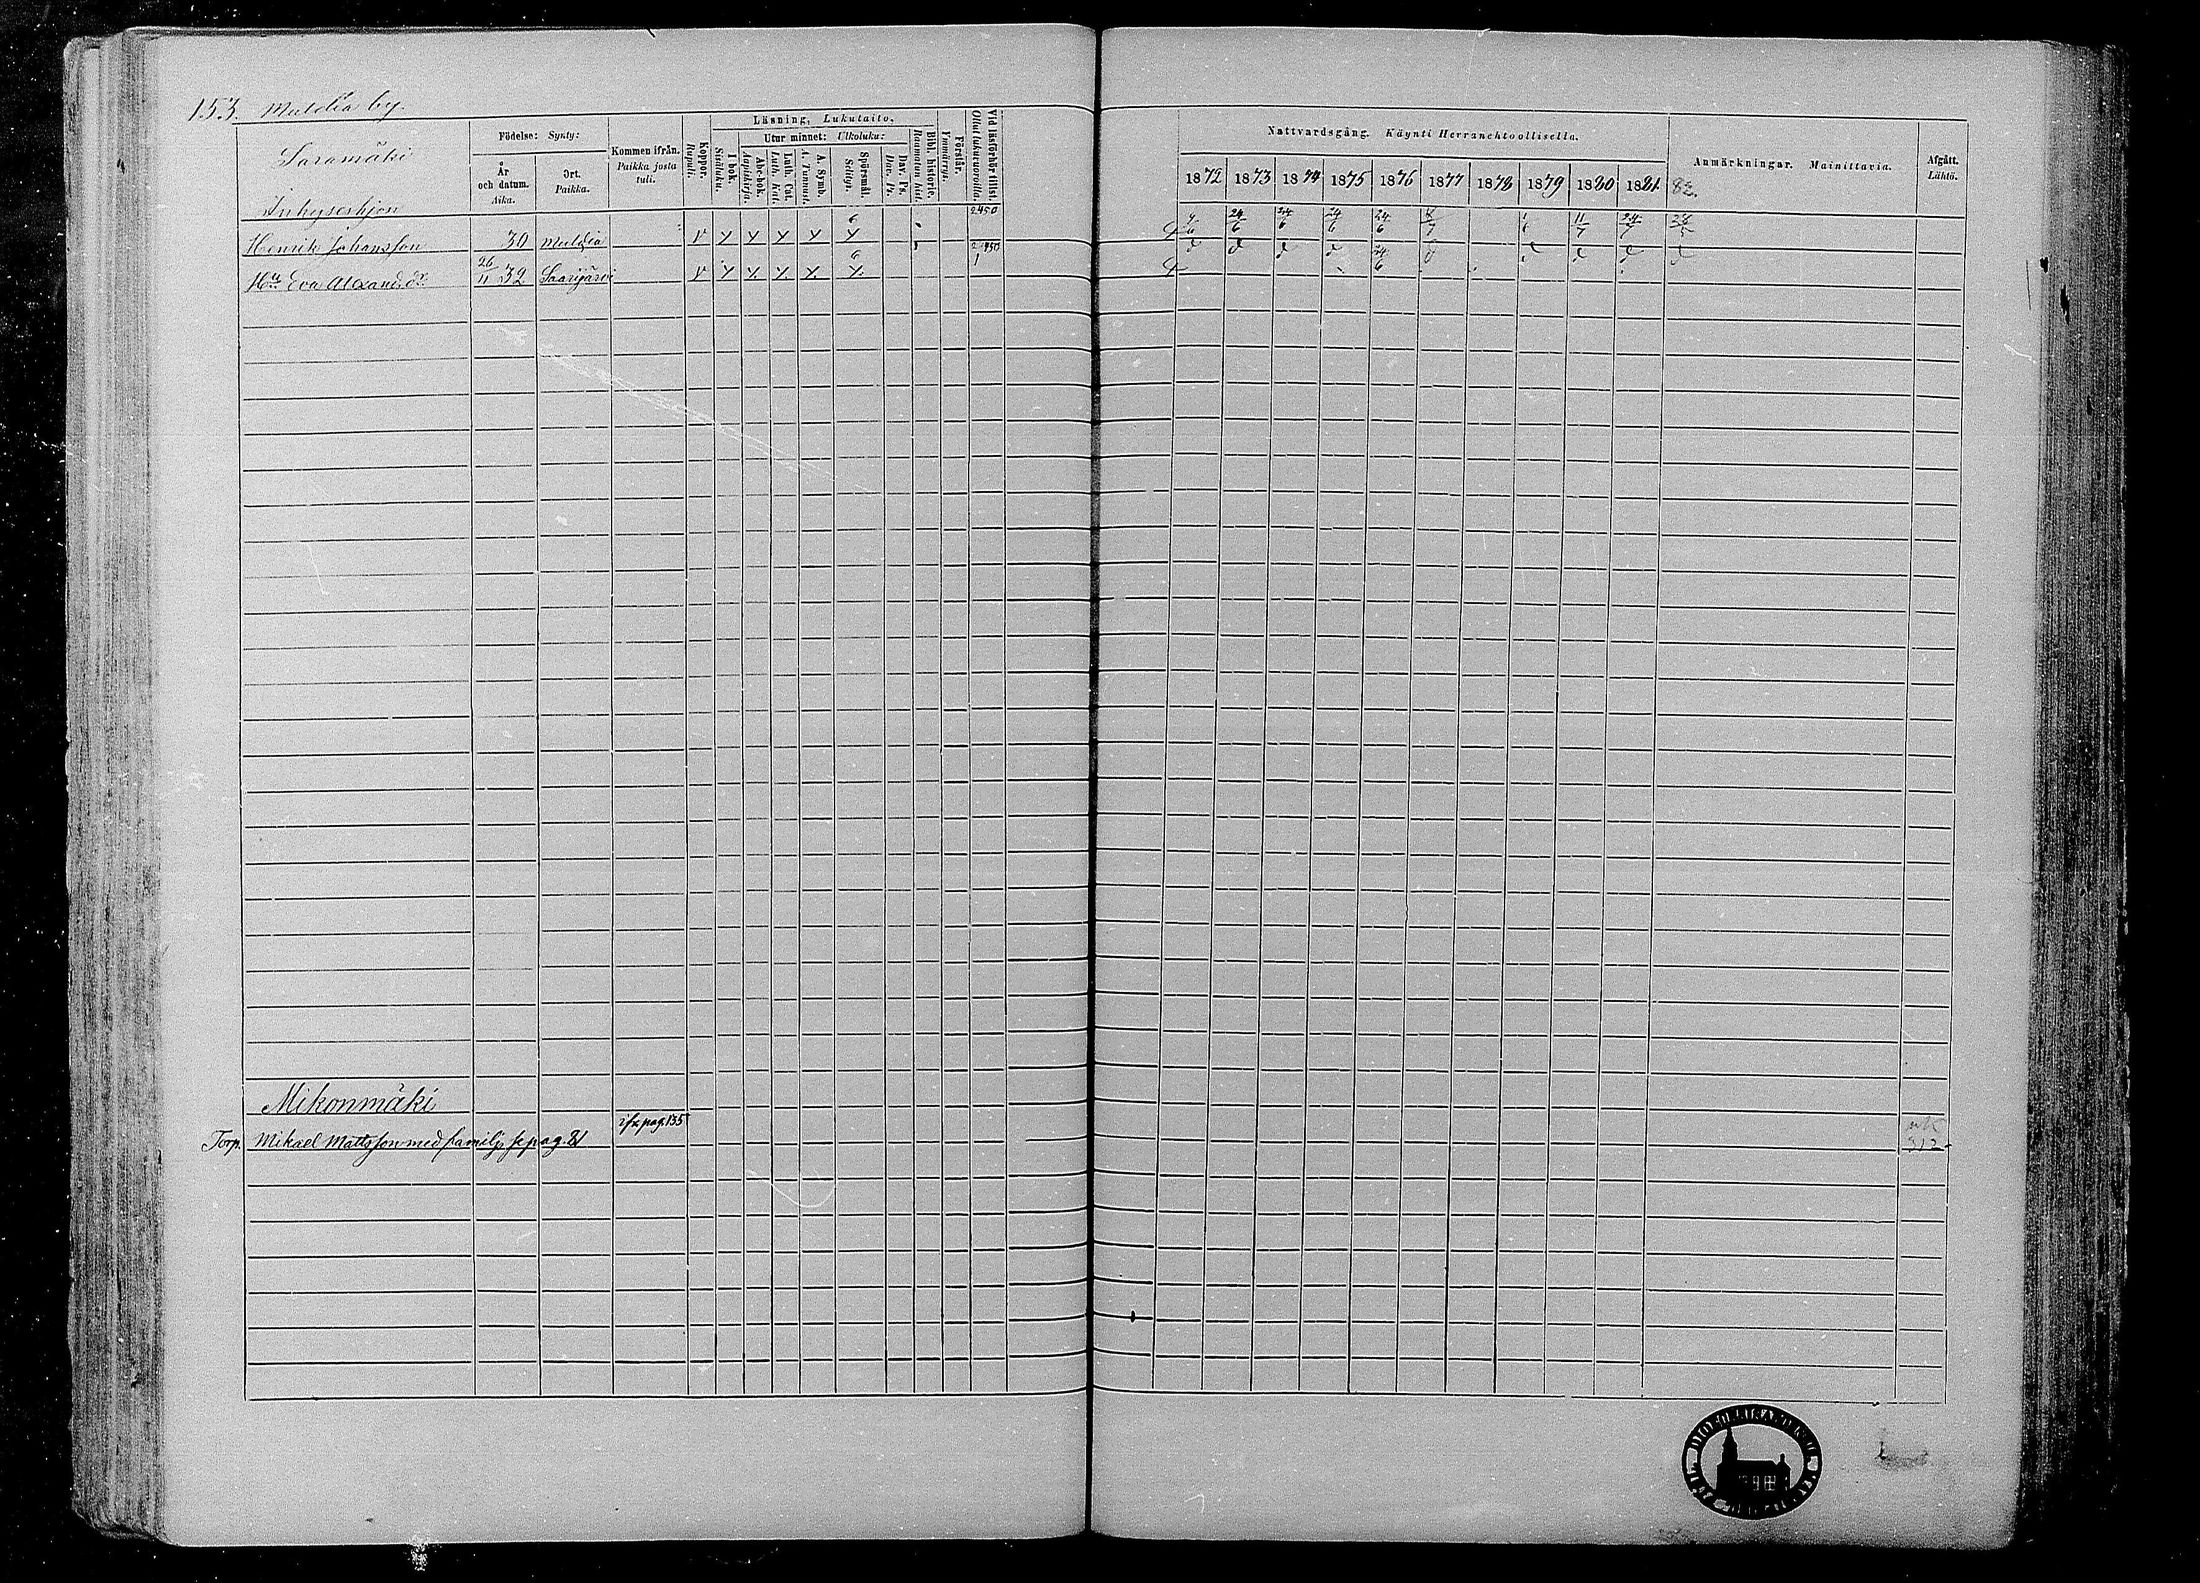 153. Muldia by.
Saramäki
Födelse: Synty:
År och datum. Aika.
Ort. Paikka.
Kommen ifrån. Paikka josta tuli.
Koppor. Rupuli.
Läsning, Lukutaito.
I bok. Sisäluku.
Utur minnet: Ulkoluku:
Abc-bok. Aapiskirja.
Luth. Cat. Luth. Kat.
A. Symb. A. Tunnust.
Spörsmål. Selitys.
Dav. Ps. Dav. Ps.
Bibl. historie. Raamatun hist.
Förstår. Ymmärrys.
Vid läsförhör tillst. Ollut lukuvuoroilla.
Nattvardsgång. Käynti Herranehtoollisella.
1872 1873 1874 1875 1876 1877 1878 1879 1880 1881 82.
Anmärkningar. Mainittavia.
Afgått. Lähtö.
Inhyseshjon
Henrik Johansson 30 Muldia v x x x x x
Hu Eva Alexand. dr 26/11 32 Saarijärvi v x x x x x
Mikonmäki
Torp. Mikael Mattsson med familj, se pag. 21 ifr pag. 135